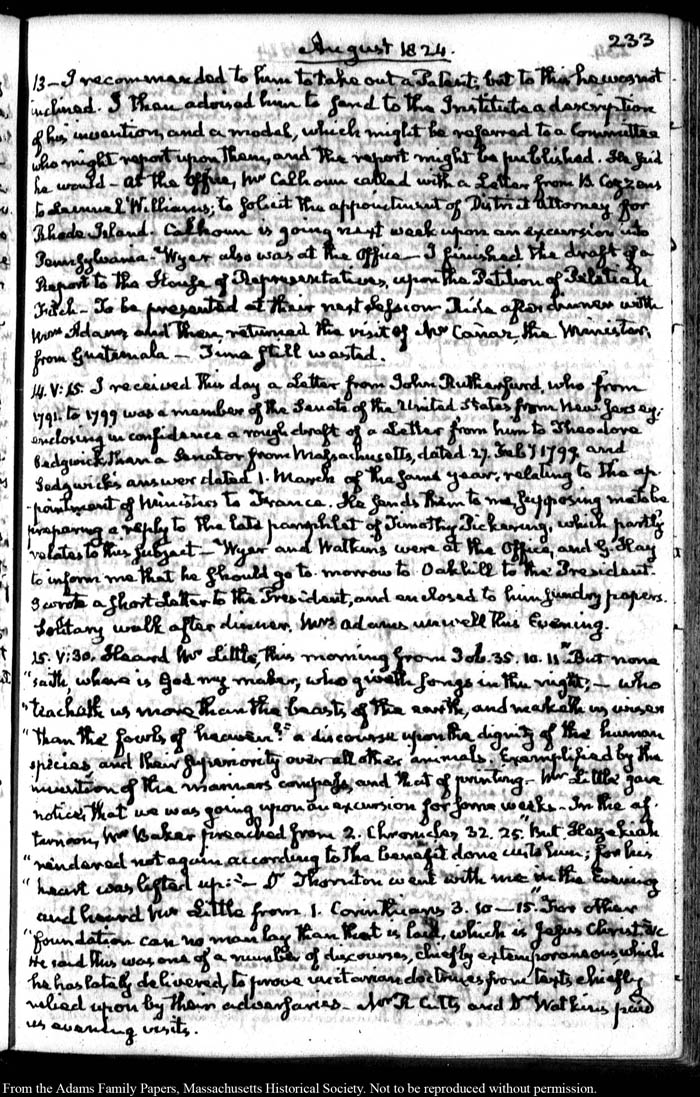 233
August 1824.
13 — I recommended to him to take out a Patent; but to this he was not
inclined. I then advised him to send to the Institute a description
of his invention, and a model, which might be referred to a Committee
who might report upon them, and the report might be published. He said
he would — At the Office, Mr Calhoun called with a Letter from B Cozzens
to Lemuel Williams; to solicit the appointment of District Attorney for
Rhode Island. Calhoun is going next week upon an excursion into
Pennsylvania — Wyer also was at the Office — I finished the draft of a
Report to the House of Representatives, upon the Petition of Pelatiah
Fitch — To be presented at their next Session. Ride after dinner with
Mrs Adams, and then returned the visit of Mr Cañaz, the Minister,
from Guatemala — Time still wasted.
14. V:15. I received this day a Letter from John Rutherfurd, who from
1791. to 1799 was a member of the Senate of the United States from New Jersey;
enclosing in confidence a rough draft of a Letter from him to Theodore
Sedgwick, then a Senator from Massachusetts, dated 27. Feby 1799 and
Sedgwick's answer dated 1. March of the same year, relating to the ap-
-pointment of Ministers to France. He sends them to me, supposing me to be
preparing a reply to the late pamphlet of Timothy Pickering, which partly
relates to this subject — Wyer and Watkins were at the Office, and G. Hay
to inform me that he should go to-morrow to Oakhill to the President.
I wrote a short Letter to the President, and enclosed to him sundry papers.
Solitary walk after dinner. Mrs Adams unwell this Evening.
15. V:30. Heard Mr Little, this morning from Job. 35. 10. 11 "But none
"saith, where is God my maker, who giveth songs in the night; — who
"teacheth us more than the beasts of the earth, and maketh us wiser
"than the fowls of heaven?" a discourse upon the dignity of the human
species, and their superiority over all other animals. Exemplified by the
invention of the mariners compass, and that of printing. — Mr Little gave
notice, that he was going upon an excursion for some weeks — In the af-
ternoon, Mr Baker preached from 2. Chronicles 32. 25. "But Hezekiah
"rendered not again according to the benefit done unto him; for his
"heart was lifted up:" — Dr Thornton went with me in the Evening
and heard Mr Little from 1. Corinthians 3. 10—15. "For other
"foundation can no man lay than that is laid, which is Jesus Christ &c
He said this was one of a number of discourses, chiefly extemporaneous which
he has lately delivered, to prove unitarian doctrines from texts chiefly
relied upon by their adversaries. Mr R. Cutts and Dr Watkins paid
us evening visits.
From the Adams Family Papers, Massachusetts Historical Society. Not to be reproduced without permission.